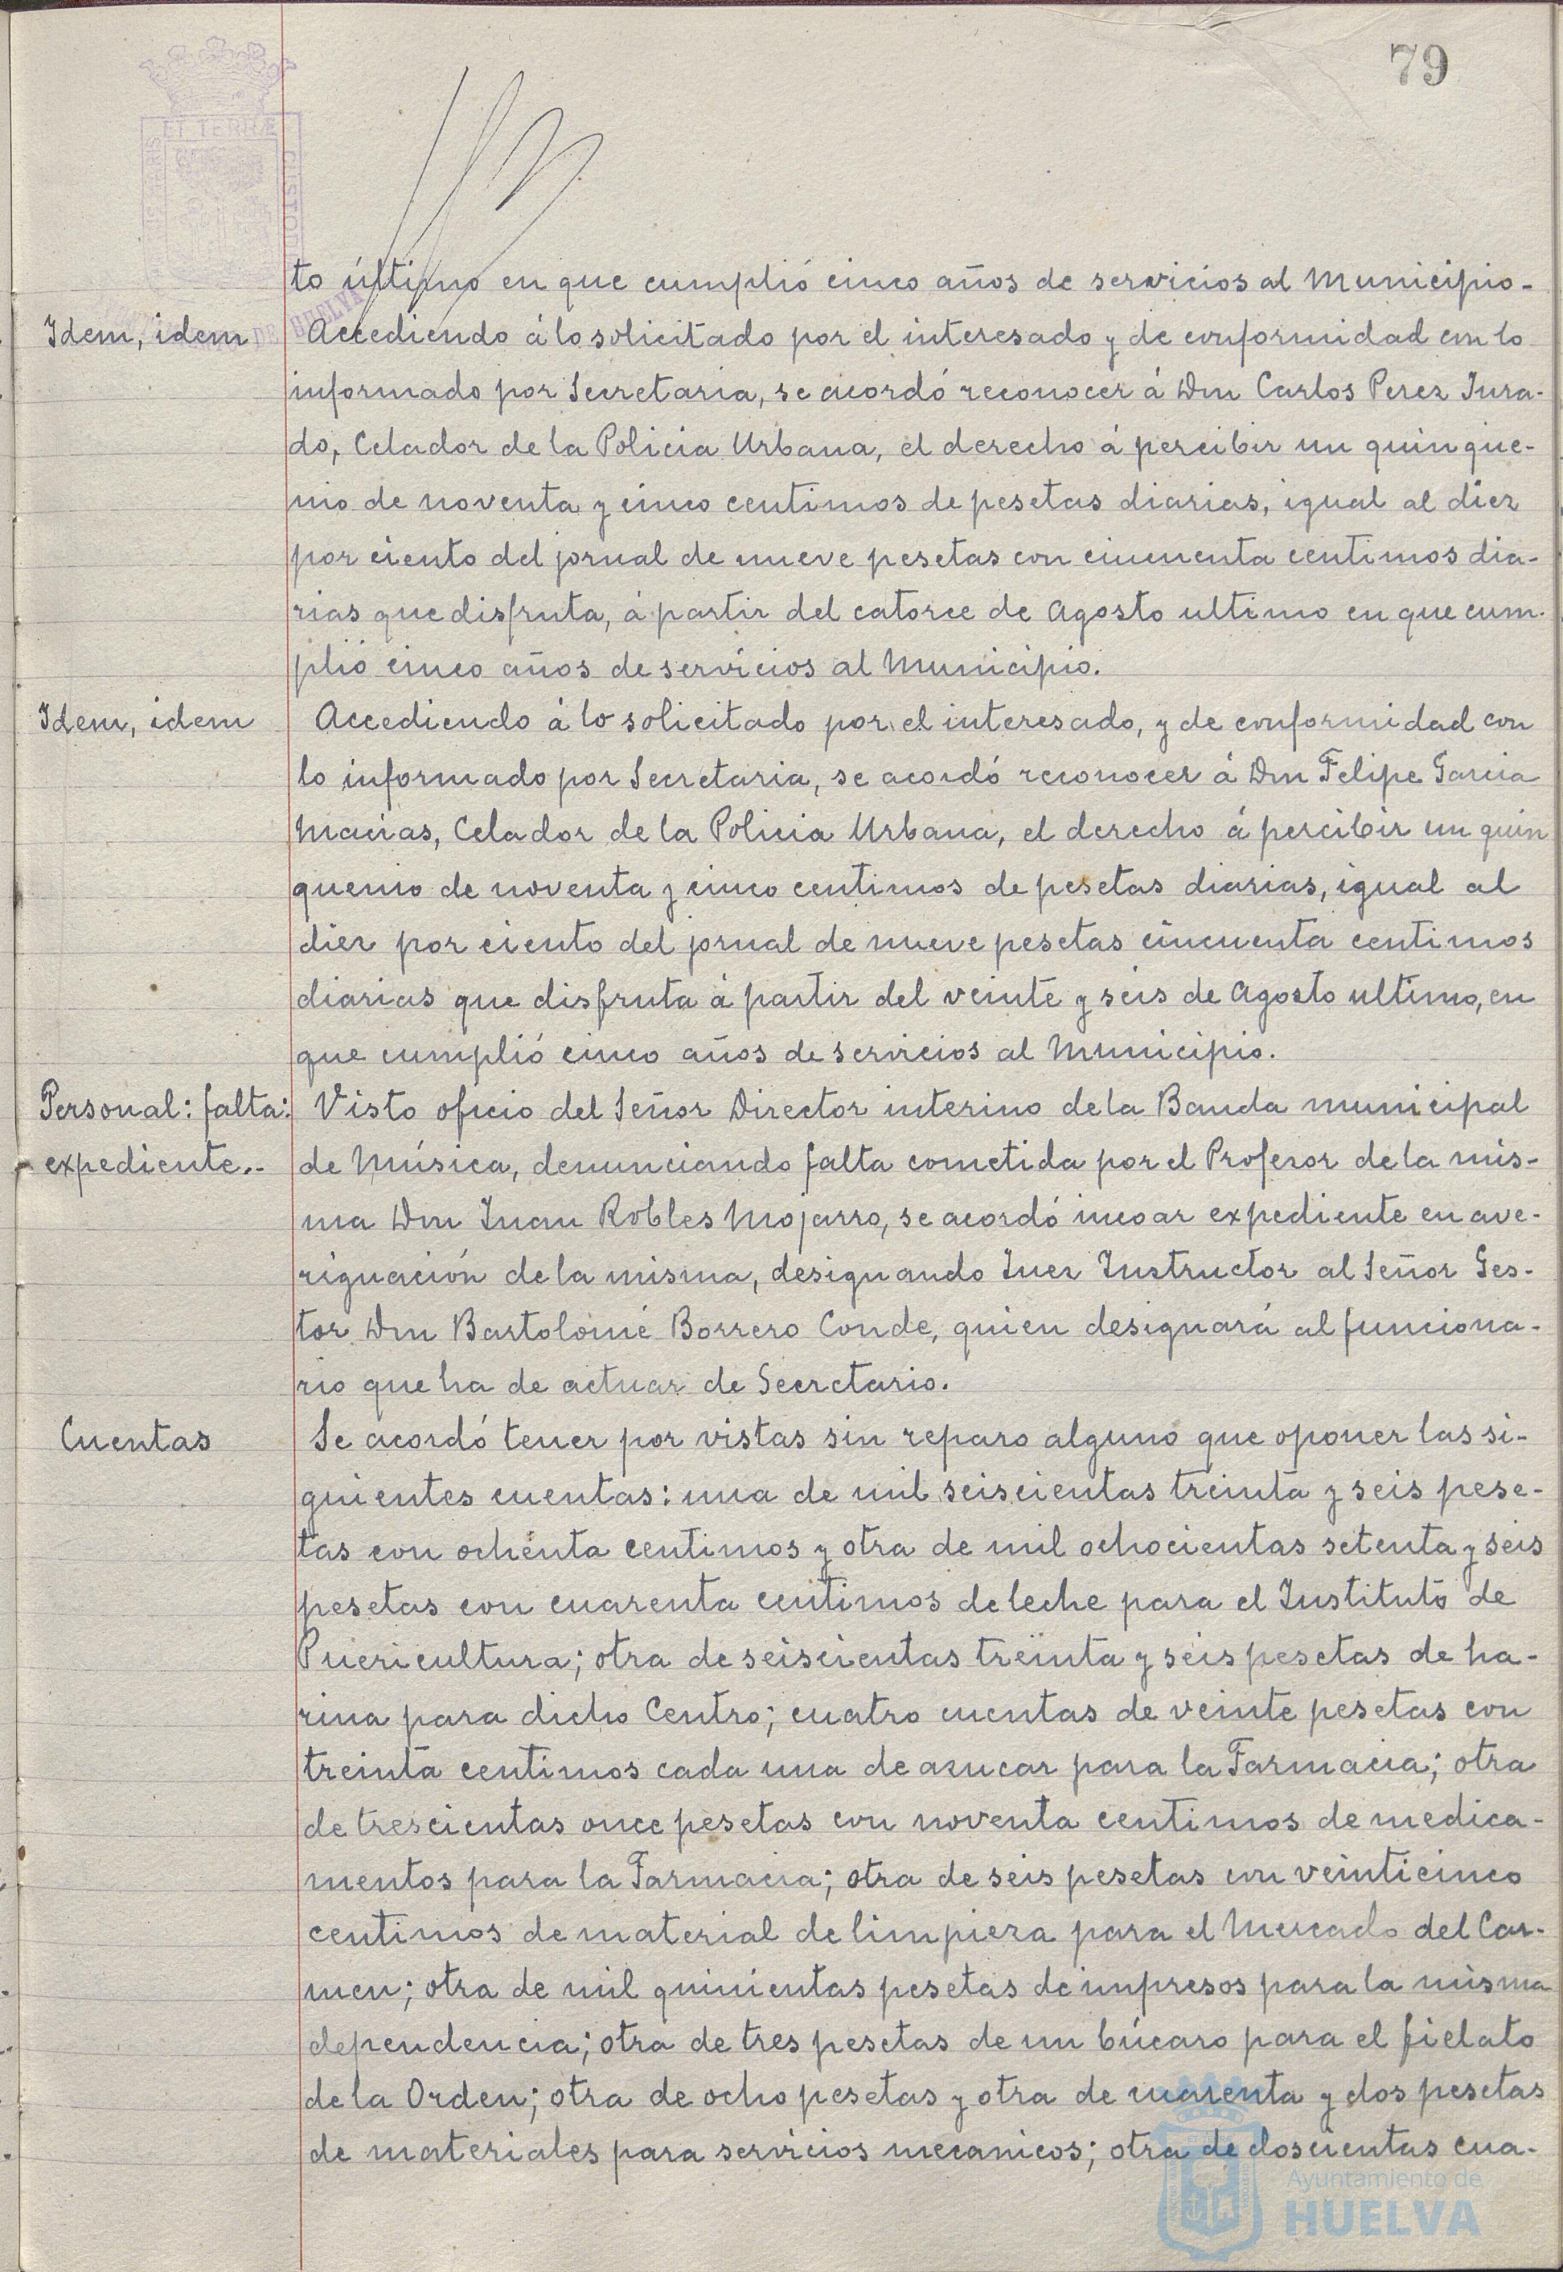 79
to último en que cumplió cinco años de servicios al Municipio.
Idem, idem
Accediendo á lo solicitado por el interesado y de conformidad con lo
informado por Secretaria, se acordó reconocer á Don Carlos Perez Jura-
do, Celador de la Policia Urbana, el derecho á percibir un quinque-
nio de noventa y cinco centimos de pesetas diarias, igual al diez
por ciento del jornal de nueve pesetas con cincuenta centimos dia-
rias que disfruta, á partir del catorce de Agosto ultimo en que cum-
plió cinco años de servicios al Municipio.
Idem, idem
Accediendo á lo solicitado por el interesado, y de conformidad con
lo informado por Secretaria, se acordó reconocer á Don Felipe Garcia
Macias, Celador de la Policia Urbana, el derecho á percibir un quin
quenio de noventa y cinco centimos de pesetas diarias, igual al
diez por ciento del jornal de nueve pesetas cincuenta centimos
diarias que disfruta á partir del veinte y seis de Agosto ultimo, en
que cumplió cinco años de servicios al Municipio.
Personal: falta:
expediente.-
Visto oficio del Señor Director interino de la Banda municipal
de Música, denunciando falta cometida por el Profesor de la mis-
ma Don Juan Robles Mojarro, se acordó incoar expediente en ave-
riguación de la misma, designando Juez Instructor al Señor Ges-
tor Don Bartolomé Borrero Conde, quien designará al funciona-
rio que ha de actuar de Secretario.
Cuentas
Se acordó tener por vistas sin reparo alguno que oponer las si-
guientes cuentas: una de mil seiscientas treinta y seis pese-
tas con ochenta centimos y otra de mil ochocientas setenta y seis
pesetas con cuarenta centimos de leche para el Instituto de
Puericultura; otra de seiscientas treinta y seis pesetas de ha-
rina para dicho Centro; cuatro cuentas de veinte pesetas con
treinta centimos cada una de azucar para la Farmacia; otra
de trescientas once pesetas con noventa centimos de medica-
mentos para la Farmacia; otra de seis pesetas con veinticinco
centimos de material de limpieza para el Mercado del Car-
men; otra de mil quinientas pesetas de impresos para la misma
dependencia; otra de tres pesetas de un búcaro para el fielato
de la Orden; otra de ocho pesetas y otra de cuarenta y dos pesetas
de materiales para servicios mecanicos; otra de doscientas cua-
Ayuntamiento de
HUELVA